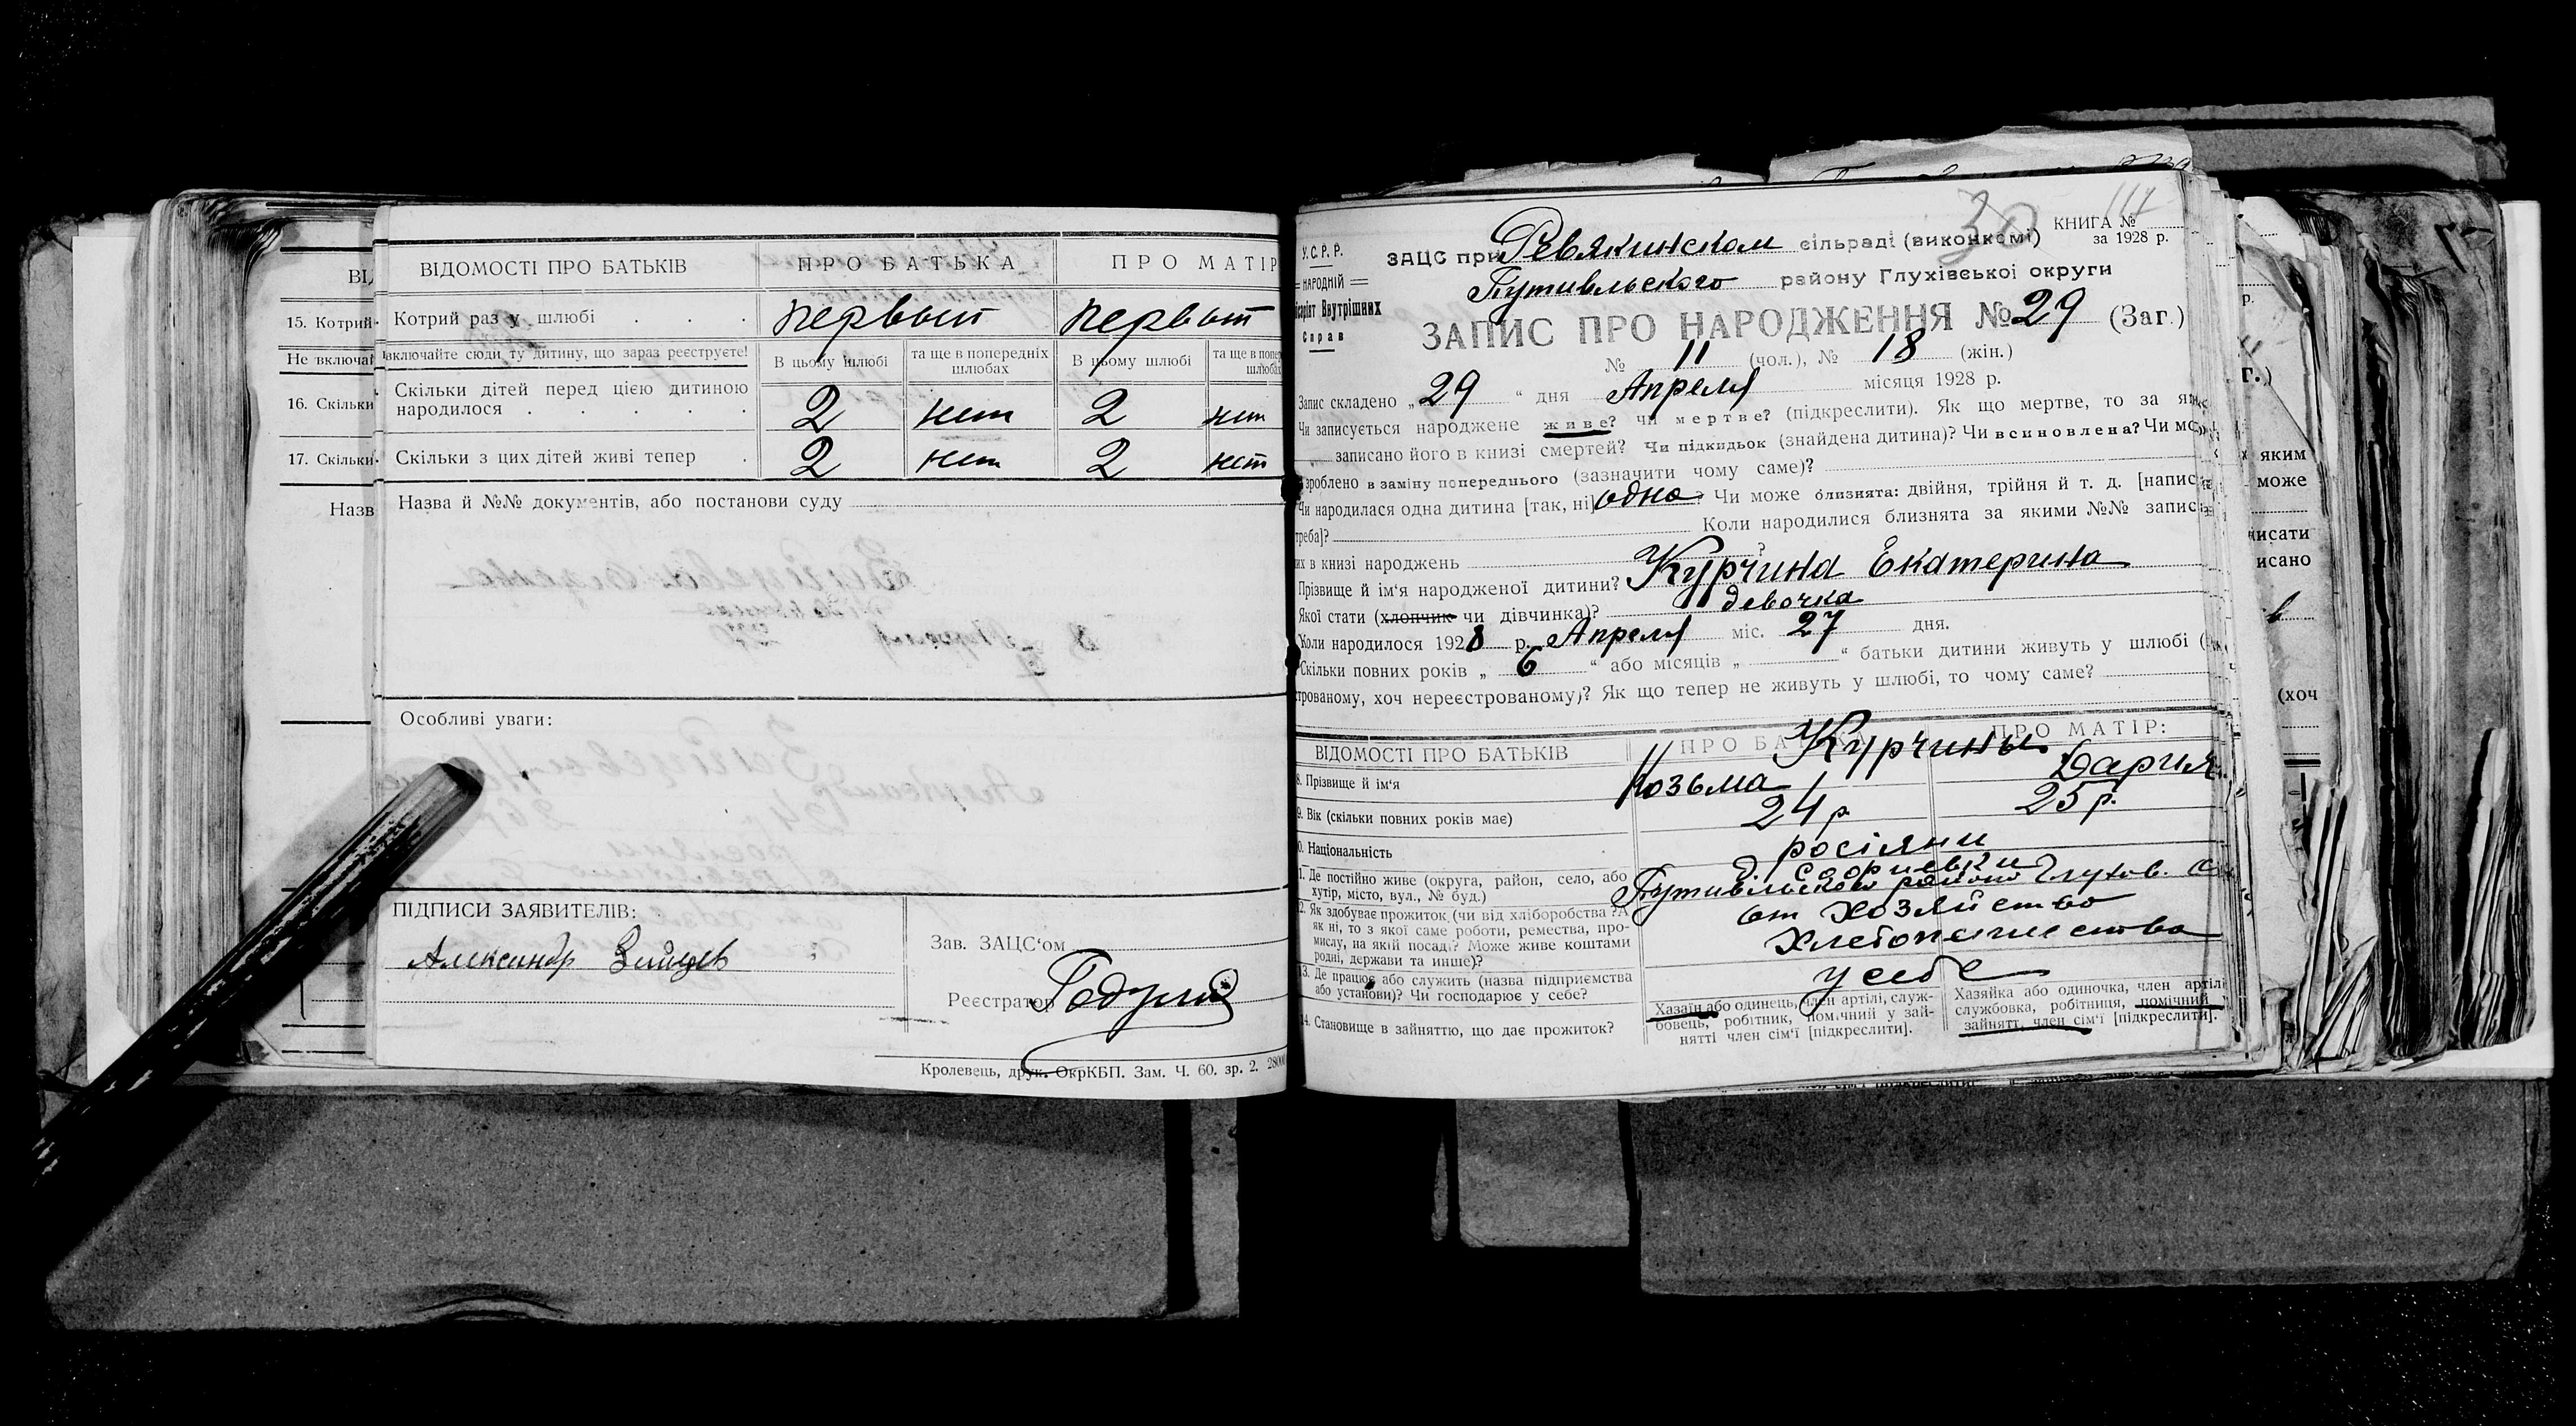 ВІДОМОСТІ ПРО БАТЬКІВ
ПРО БАТЬКА
ПРО МАТІР
15. Котрий
Котрий раз у шлюбі . . .
первый
первый
Не включай
включайте сюди ту дитину, що зараз реєструєте!
В цьому шлюбі
та ще в попередніх шлюбах
В цьому шлюбі
та ще в попер
шлюбах
16. Скільки
Скільки дітей перед цією дитиною
народилося . . . . .
2 нет 2 нет
17. Скільки
Скільки з цих дітей живі тепер .
2 нет 2 нет
Назв
Назва й №№ документів, або постанови суду
Особливі уваги:
ПІДПИСИ ЗАЯВИТЕЛІВ:
Александр Зайцев
Зав. ЗАЦС'ом
Реєстратор
Кролевець, друк. ОкрКБП. Зам. Ч. 60. зр. 2. 28000
30
117
КНИГА №
за 1928 р.
У.С.Р.Р.
НАРОДНІЙ
Внутрішних
Справ
ЗАЦС при Ревякинском сільраді (виконкомі)
Путивльского району Глухівської округи
ЗАПИС ПРО НАРОДЖЕННЯ № 29 (Заг.)
№ 11 (чол.), № 18 (жін.)
Запис складено „ 29 “ дня Апреля місяця 1928 р.
Чи записується народжене живе? чи мертве? (підкреслити). Як що мертве, то за як
записано його в книзі смертей? Чи підкидьок (знайдена дитина)? Чи всиновлена? Чи мо
зроблено в заміну попереднього (зазначити чому саме)?
Чи народилася одна дитина [так, ні] одна? Чи може близнята: двійня, трійня й т. д. [напис
треба]? Коли народилися близнята за якими №№ запис
их в книзі народжень ?
Прізвище й ім'я народженої дитини? Курчина Екатерина
Якої стати (хлопчик чи дівчинка)? девочка
Коли народилося 1928 р. Апреля міс. 27 дня.
Скільки повних років „ 6 “ або місяців „ “ батьки дитини живуть у шлюбі (
трованому, хоч нереєстрованому)? Як що тепер не живуть у шлюбі, то чому саме?
ВІДОМОСТІ ПРО БАТЬКІВ
ПРО БАТЬКА
ПРО МАТІР:
Курчины
8. Прізвище й ім'я
Козьма
Дария
9. Вік (скільки повних років має)
24 р.
25 р.
0. Національність
росіяни
1. Де постійно живе (округа, район, село, або
хутір, місто, вул., № буд.)
Путивльского района Глухов.
2. Як здобуває прожиток (чи від хліборобства? А
як ні, то з якої саме роботи, ремества, про-
мислу, на якій посаді? Може живе коштами
родні, держави та инше)?
от хозяйство
Хлебопашества
13. Де працює або служить (назва підприємства
або установи)? Чи господарює у себе?
у себе
14. Становище в зайняттю, що дає прожиток?
Хазяїн або одинець, член артілі, служ-
бовець, робітник, помічний у зай-
нятті член сім'ї [підкреслити].
Хазяйка або одиночка, член артілі
службовка, робітниця, помічний
зайнятт. член сім'ї [підкреслити].
яким
може
исати
исано
(хоч